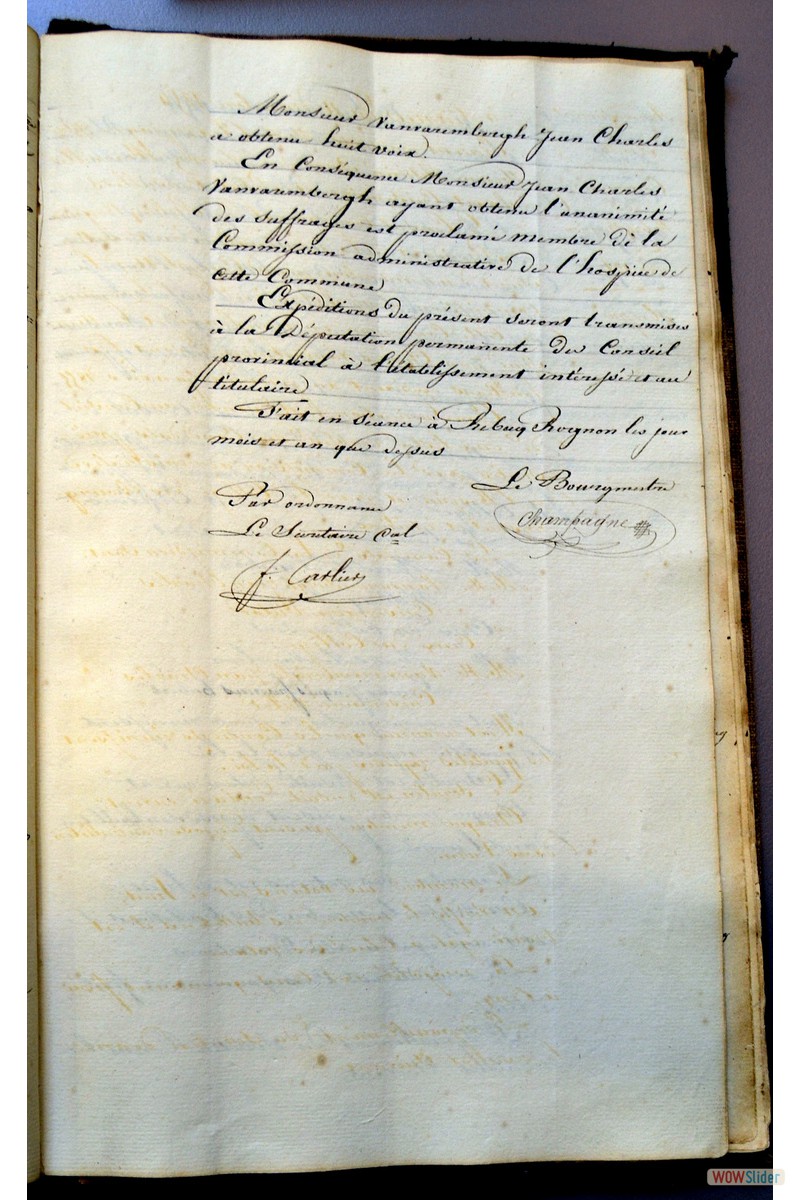 Monsieur Vanvarembergh Jean Charles
a obtenu huit voix.
En Conséquence Monsieur Jean Charles
Vanvarembergh ayant obtenu l'unanimité
des suffrages est proclamé membre de la
Commission administrative de l'hospice de
cette Commune
Expéditions du présent seront transmises
à la Députation permanente du Conseil
provincial à l'établissement intéressé et au
titulaire
Fait en séance à Rebecq Rognon les jour
mois et an que dessus
Le Bourgmestre
Champagne
Par ordonnance
Le Secrétaire cal
f. Carlier
WOWSlider